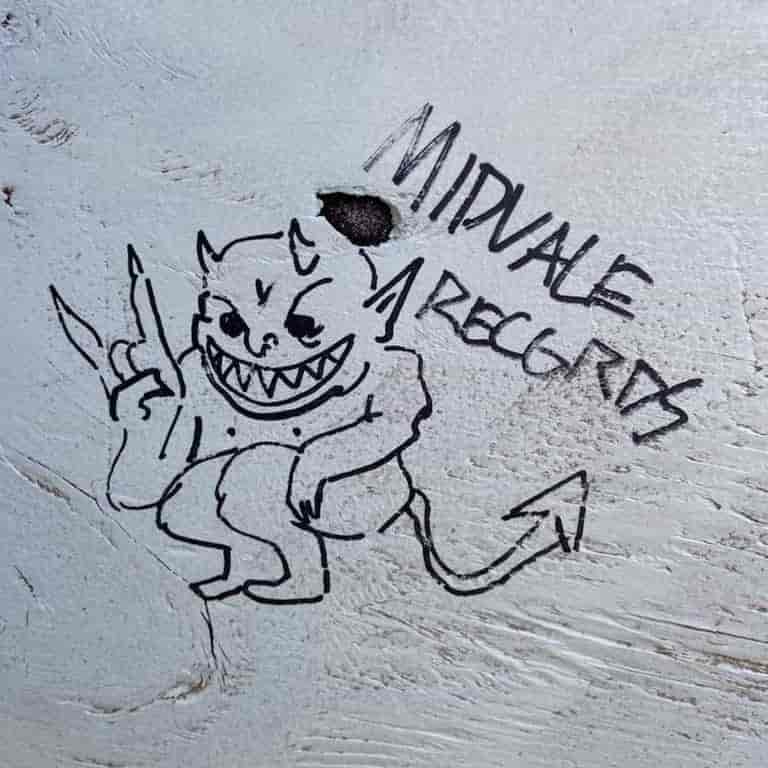 MIDVALE
RECORDS